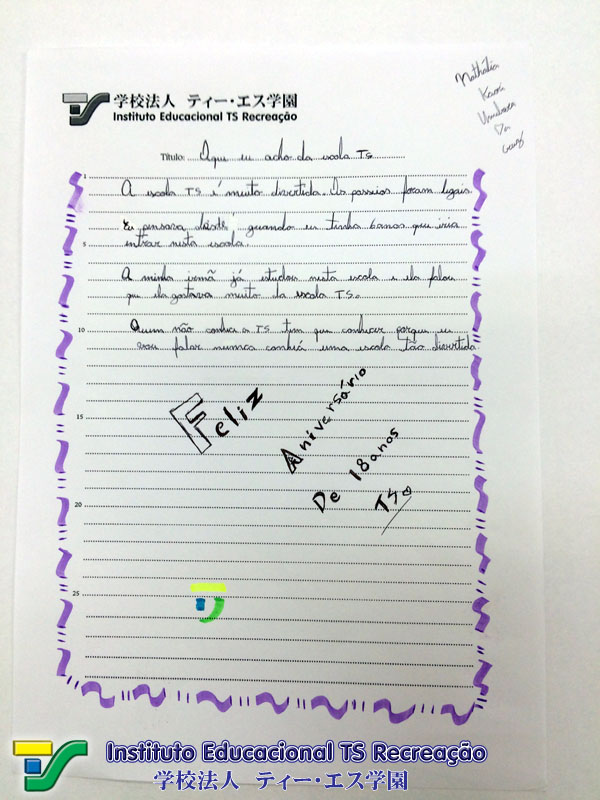 学校法人 ティー・エス学園
Instituto Educacional TS Recreação
Nathália
Titulo: Oque eu acho da escola TS
1
A escola TS é muito divertida. Os passeios foram legais.
Eu pensava desde quando eu tinha 6 anos que iria
5
entrar nesta escola.
A minha irmã já estudou nesta escola e ela falou
que ela gostava muito da escola TS.
10
Quem não conhece a TS tem que conhecer porque eu
vou falar nunca conheci uma escola tão divertida
Feliz
Aniversário
15
De 18 anos
TS
20
25
Instituto Educacional TS Recreação
学校法人 ティー・エス学園